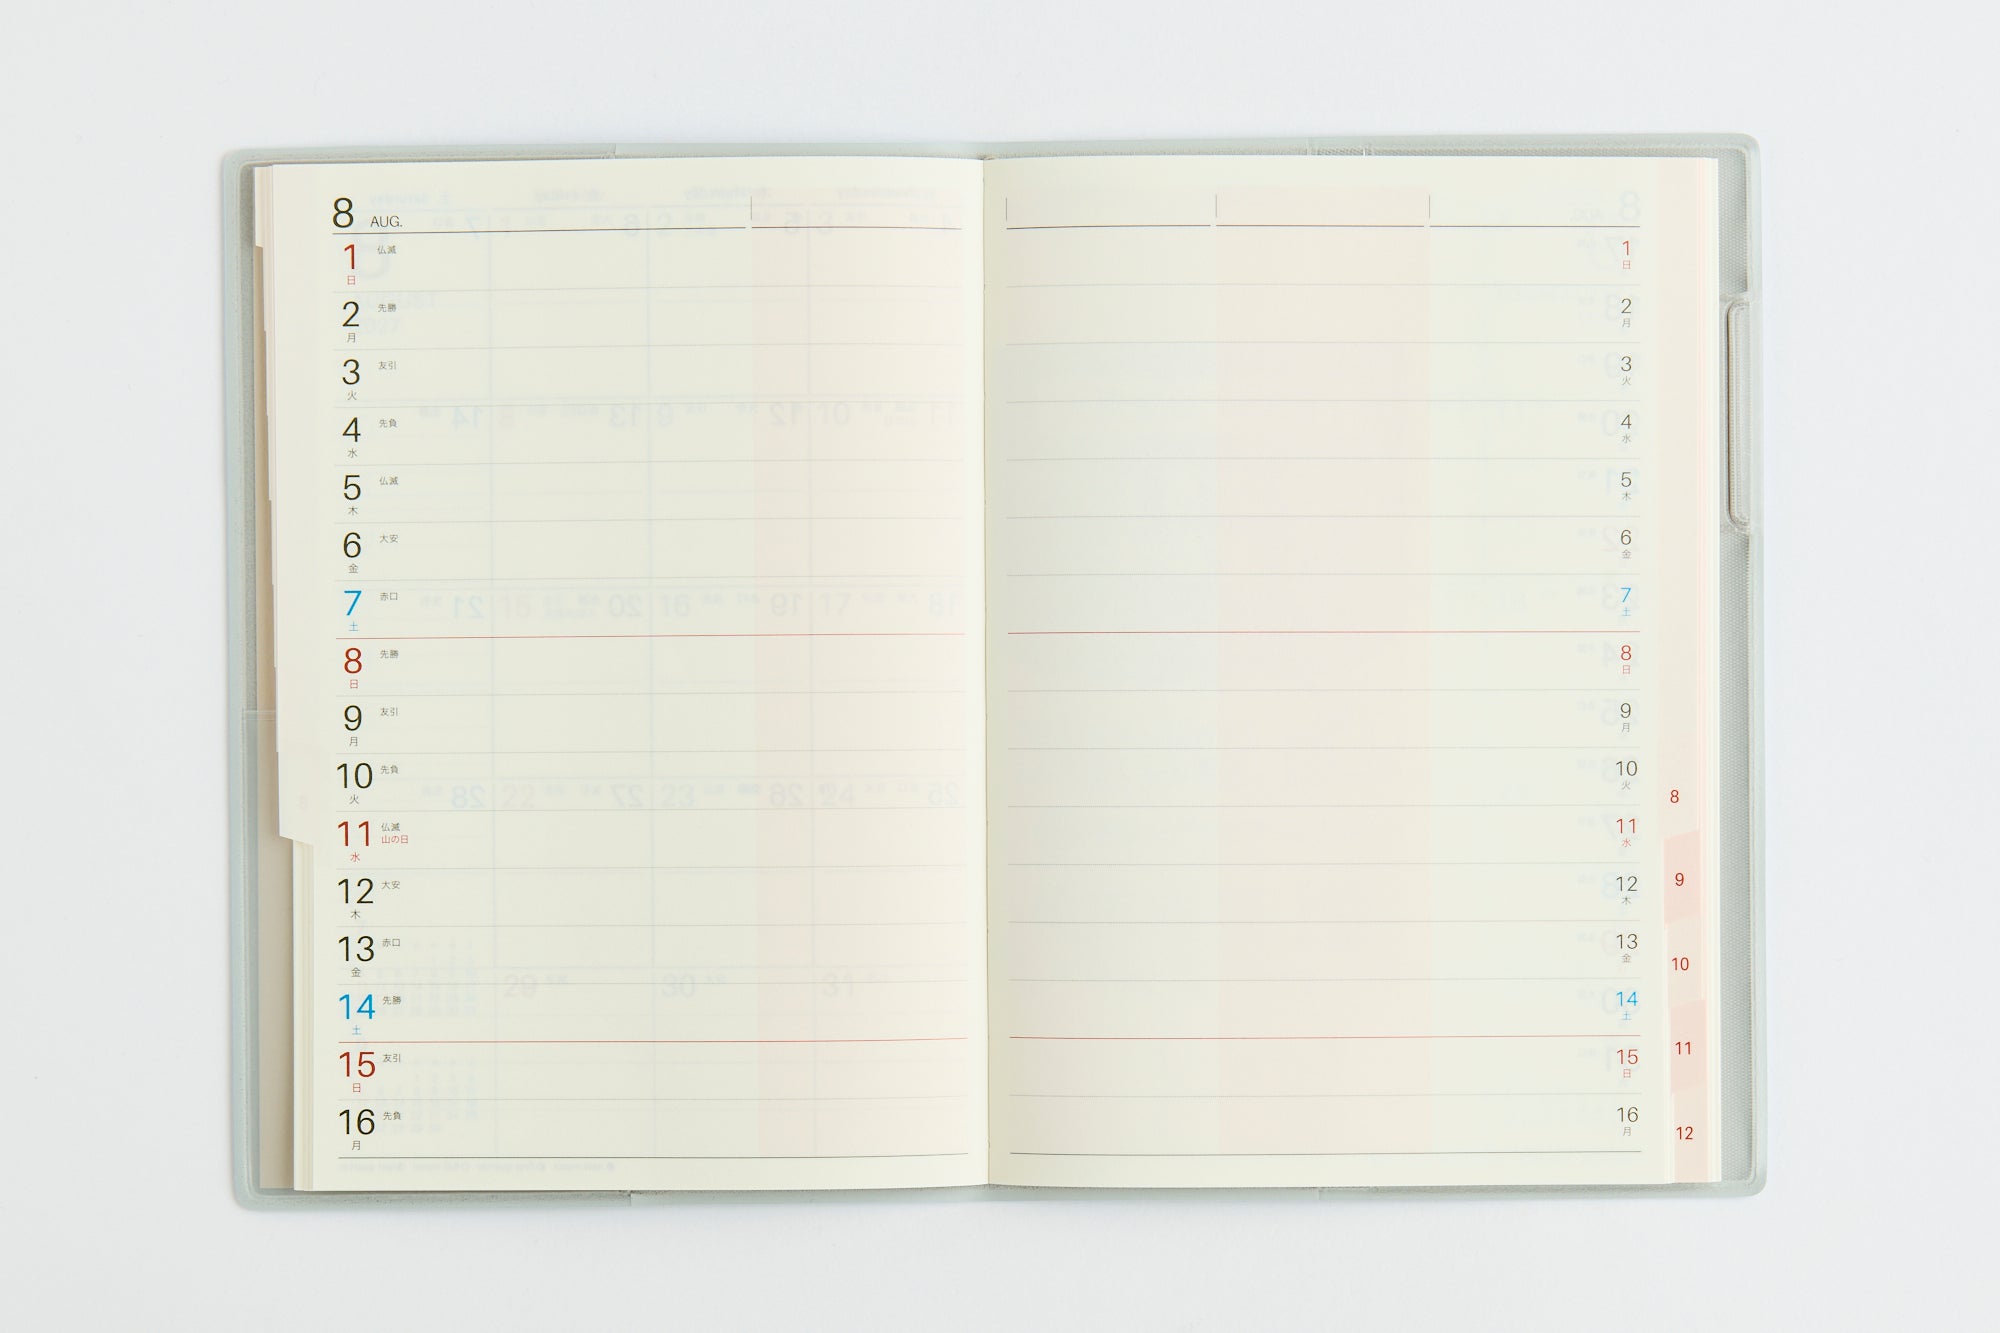 8 AUG.
1 仏滅
日
2 先勝
月
3 友引
火
4 先負
水
5 仏滅
木
6 大安
金
7 赤口
土
8 先勝
日
9 友引
月
10 先負
火
11 仏滅
山の日
水
12 大安
木
13 赤口
金
14 先勝
土
15 友引
日
16 先負
月
1
日
2
月
3
火
4
水
5
木
6
金
7
土
8
日
9
月
10
火
11
水
12
木
13
金
14
土
15
日
16
月
8
9
10
11
12